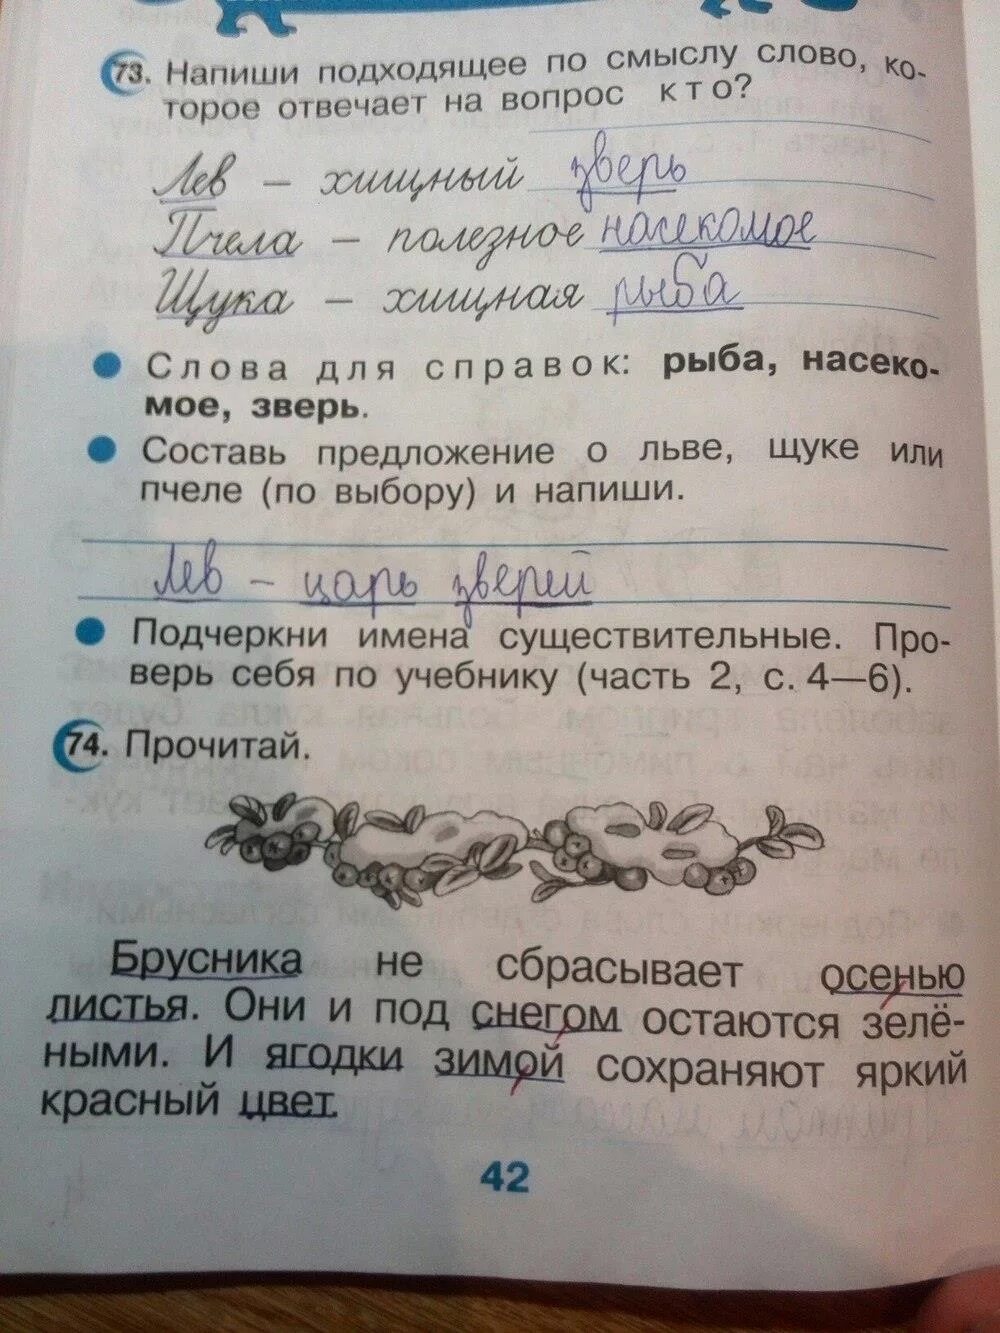 73. Напиши подходящее по смыслу слово, ко-
торое отвечает на вопрос кто?
Лев – хищный зверь
Пчела – полезное насекомое
Щука – хищная рыба
Слова для справок: рыба, насеко-
мое, зверь.
Составь предложение о льве, щуке или
пчеле (по выбору) и напиши.
Лев – царь зверей
Подчеркни имена существительные. Про-
верь себя по учебнику (часть 2, с. 4—6).
74. Прочитай.
Брусника не сбрасывает осенью
листья. Они и под снегом остаются зелё-
ными. И ягодки зимой сохраняют яркий
красный цвет.
42